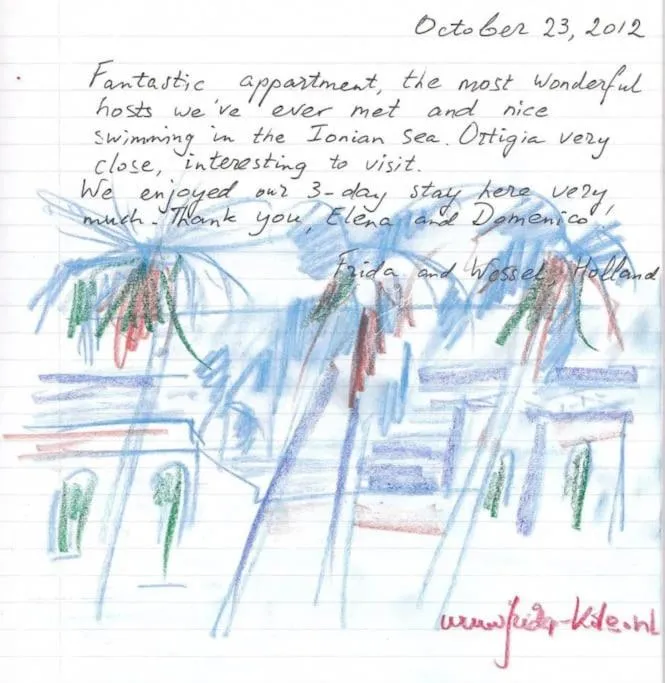 October 23, 2012
Fantastic appartment, the most wonderful
hosts we've ever met and nice
swimming in the Ionian Sea. Ortigia very
close, interesting to visit.
We enjoyed our 3-day stay here very,
much. Thank you, Elena and Domenico!
Frida and Wessel, Holland